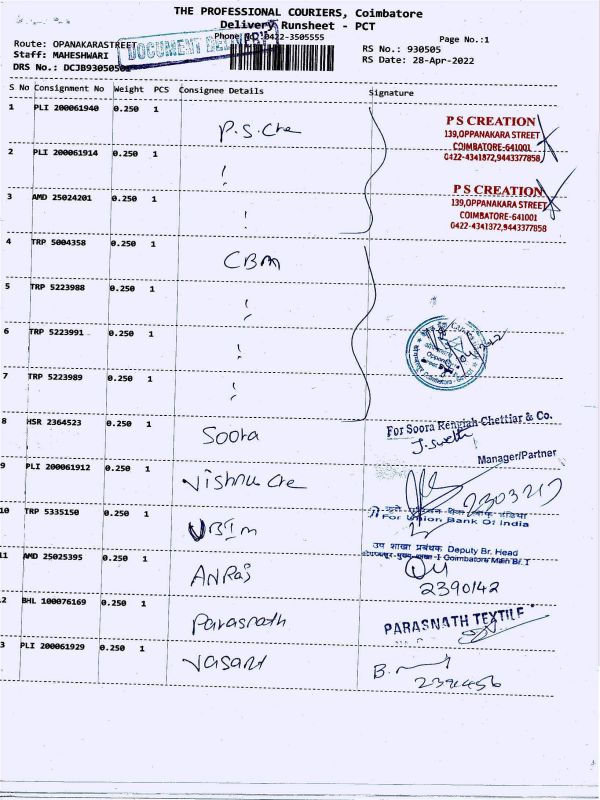 THE PROFESSIONAL COURIERS, Coimbatore
Delivery Runsheet - PCT
Phone No: 0422-3505555
Page No.:1
Route: OPANAKARASTREET
Staff: MAHESHWARI
DRS No.: DCJB93050501
DOCUMENT DELIVERY
RS No.: 930505
RS Date: 28-Apr-2022
S No Consignment No Weight PCS Consignee Details Signature
1 PLI 200061940 0.250 1 P.S.Cre
P S CREATION
139,OPPANAKARA STREET
COIMBATORE-641001
0422-4341872,9443377858
2 PLI 200061914 0.250 1
3 AMD 25024201 0.250 1
P S CREATION
139,OPPANAKARA STREET
COIMBATORE-641001
0422-4341872,9443377858
4 TRP 5004358 0.250 1 CBM
5 TRP 5223988 0.250 1
6 TRP 5223991 0.250 1
7 TRP 5223989 0.250 1
8 HSR 2364523 0.250 1 Soora
For Soora Rengiah Chettiar & Co.
J. Swetha
Manager/Partner
9 PLI 200061912 0.250 1 Vishnu Cre
10 TRP 5335150 0.250 1 UBIM
For Union Bank Of India
उप शाखा प्रबंधक Deputy Br. Head
Coimbatore Main Br. I
11 AMD 25025395 0.250 1 ANRaj
2390142
2 BHL 100076169 0.250 1 Parasnath
PARASNATH TEXTILE
3 PLI 200061929 0.250 1 Vasant
B.